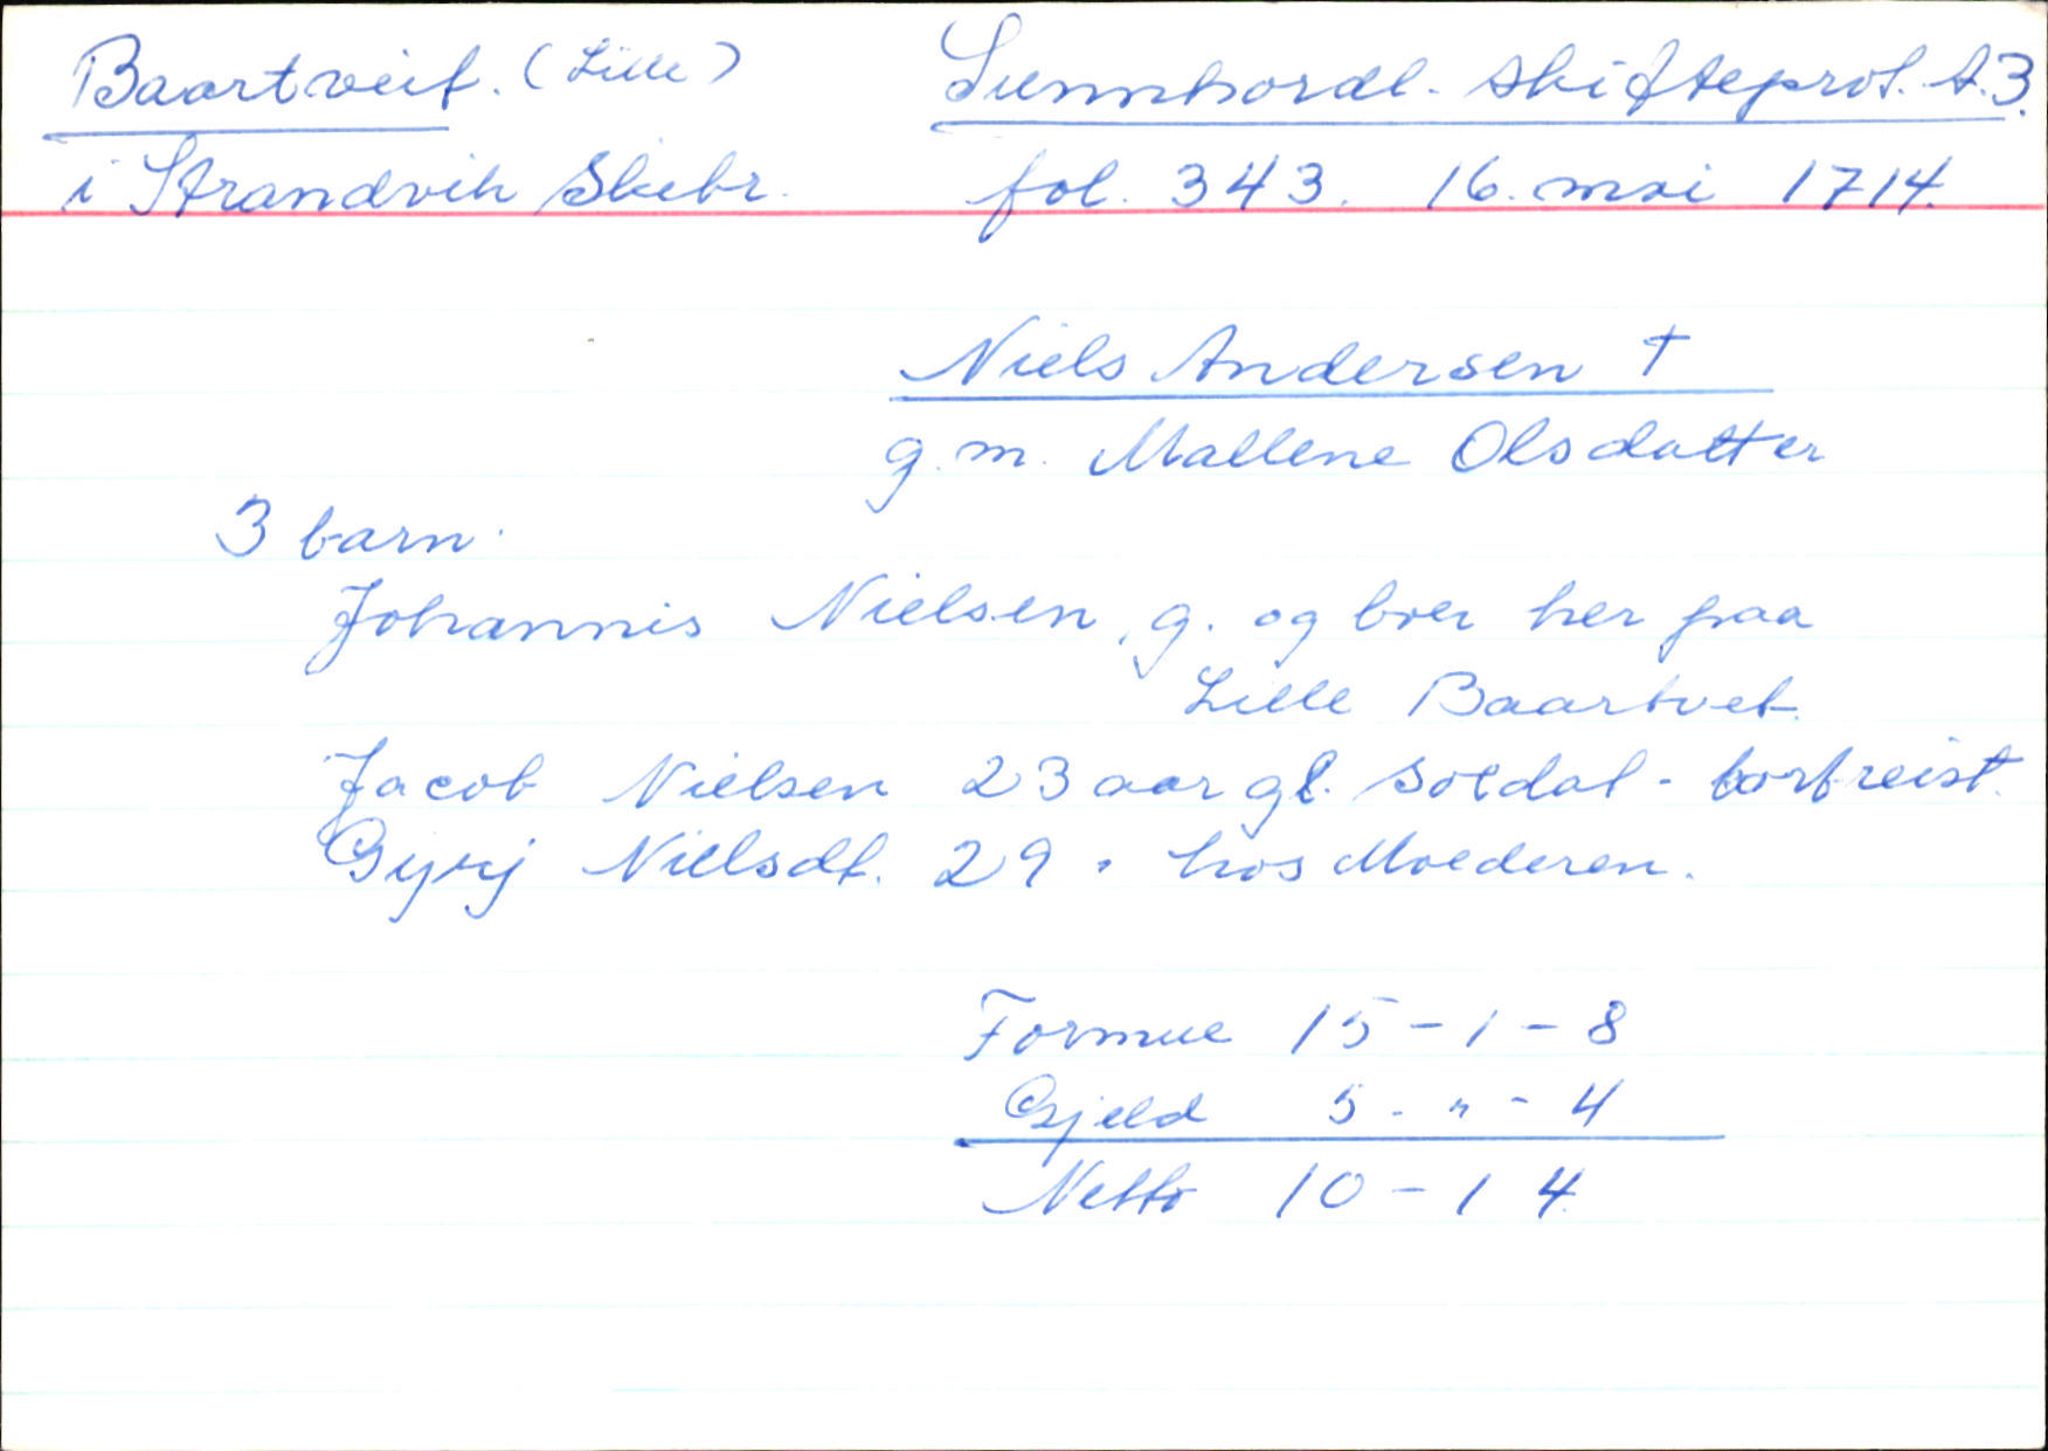 Baartveit. (Lille) Sunnhordl. skifteprot. A.3.
i Strandvik Skibr. fol. 343. 16. mai 1714.
Niels Andersen †
g. m. Mallene Olsdatter
3 barn.
Johannis Nielsen, g. og boer her paa
Lille Baartvet.
Jacob Nielsen 23 aar gl. soldat - bortreist.
Gyrj Nielsdt. 29 " hos Moderen.
Formue 15 - 1 - 8
Gjeld 5 - " - 4
Netto 10 - 1 4.